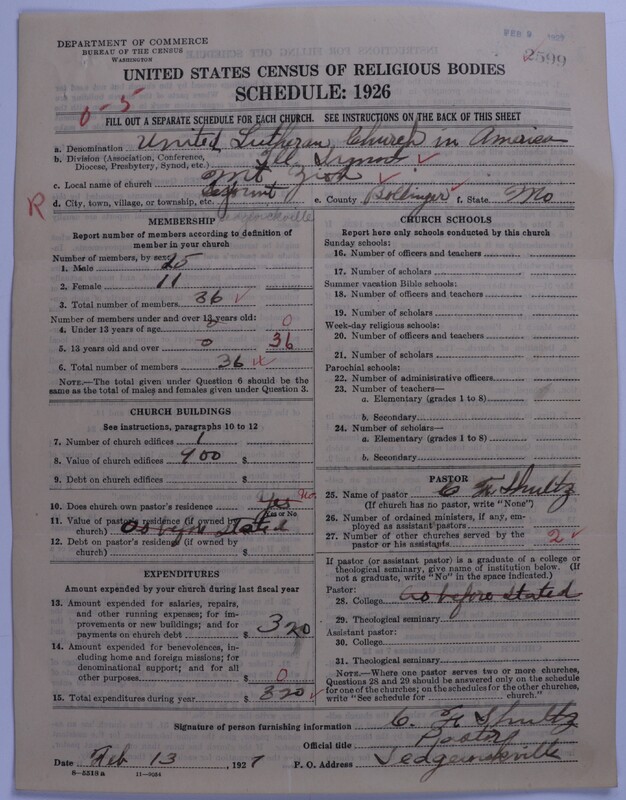 DEPARTMENT OF COMMERCE
BUREAU OF THE CENSUS
WASHINGTON
FEB 9
2599
UNITED STATES CENSUS OF RELIGIOUS BODIES
SCHEDULE: 1926
0-5
FILL OUT A SEPARATE SCHEDULE FOR EACH CHURCH. SEE INSTRUCTIONS ON THE BACK OF THIS SHEET
a. Denomination United Lutheran Church in America
b. Division (Association, Conference, Diocese, Presbytery, Synod, etc.) Ill Synod ✓
c. Local name of church Mt Zion ✓
R d. City, town, village, or township, etc. Sedgewickville e. County Bollinger ✓ f. State Mo
MEMBERSHIP
Report number of members according to definition of
member in your church
Number of members, by sex:
1. Male 25
2. Female 11
3. Total number of members 36 ✓
Number of members under and over 13 years old:
4. Under 13 years of age 0 0
5. 13 years old and over 0 36
6. Total number of members 36
NOTE.—The total given under Question 6 should be
same as the total of males and females given under Question 3.
CHURCH BUILDINGS
See instructions, paragraphs 10 to 12
7. Number of church edifices 1
8. Value of church edifices 900 $
9. Debt on church edifices $
10. Does church own pastor's residence Yes No.
Yes or No
11. Value of pastor's residence (if owned by
church) As before stated
12. Debt on pastor's residence (if owned by
church) $
EXPENDITURES
Amount expended by your church during last fiscal year
13. Amount expended for salaries, repairs,
and other running expenses; for im-
provements or new buildings; and for
payments on church debt $ 320
14. Amount expended for benevolences, in-
cluding home and foreign missions; for
denominational support; and for all
other purposes $ 0
15. Total expenditures during year $ 320 ✓
CHURCH SCHOOLS
Report here only schools conducted by this church
Sunday schools:
16. Number of officers and teachers
17. Number of scholars
Summer vacation Bible schools:
18. Number of officers and teachers
19. Number of scholars
Week-day religious schools:
20. Number of officers and teachers
21. Number of scholars
Parochial schools:
22. Number of administrative officers
23. Number of teachers—
a. Elementary (grades 1 to 8)
b. Secondary
24. Number of scholars—
a. Elementary (grades 1 to 8)
b. Secondary
PASTOR
25. Name of pastor C. H. Shultz
(If church has no pastor, write "None")
26. Number of ordained ministers, if any, em-
ployed as assistant pastors
27. Number of other churches served by the
pastor or his assistants 2 ✓
If pastor (or assistant pastor) is a graduate of a college or
theological seminary, give name of institution below. (If
not a graduate, write "No" in the space indicated.)
Pastor:
28. College As before stated
29. Theological seminary
Assistant pastor:
30. College
31. Theological seminary
NOTE.—Where one pastor serves two or more churches,
Questions 28 and 29 should be answered only on the schedule
for one of the churches; on the schedules for the other churches,
write "See schedule for church."
Signature of person furnishing information C. H. Shultz
Official title Pastor
Date Feb 13, 1927 P. O. Address Sedgewickville
8—5518a 11—9034